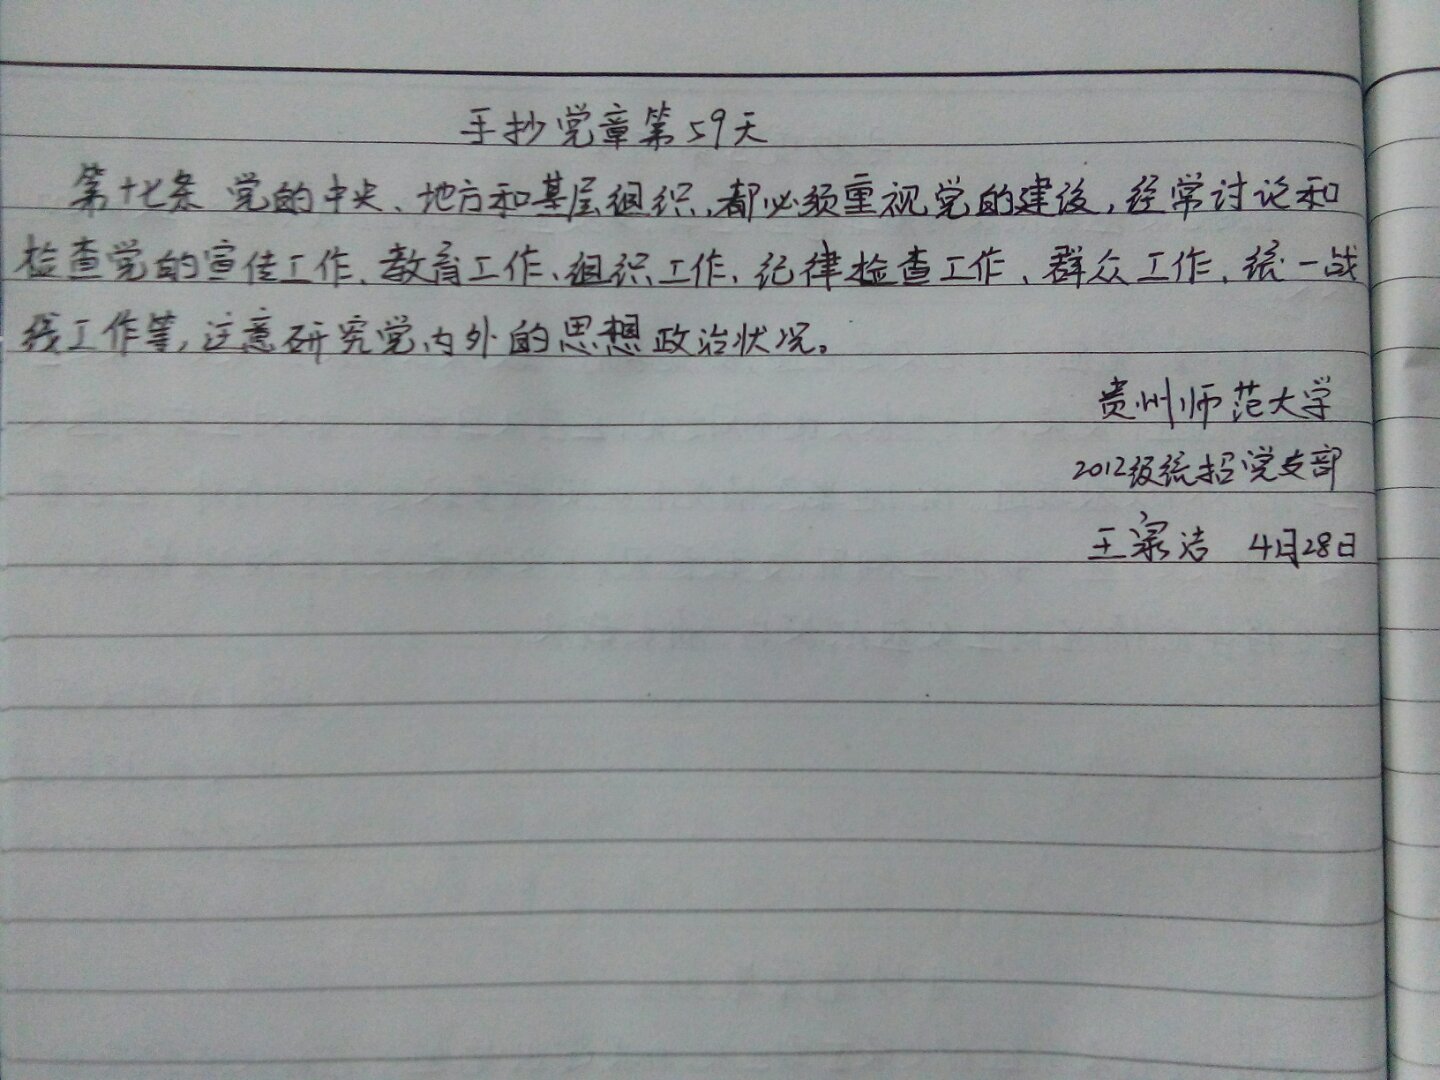 手抄党章第59天
第十七条 党的中央、地方和基层组织,都必须重视党的建设,经常讨论和
检查党的宣传工作、教育工作、组织工作、纪律检查工作、群众工作、统一战
线工作等,注意研究党内外的思想政治状况。
贵州师范大学
2012级统招党支部
王家洁 4月28日